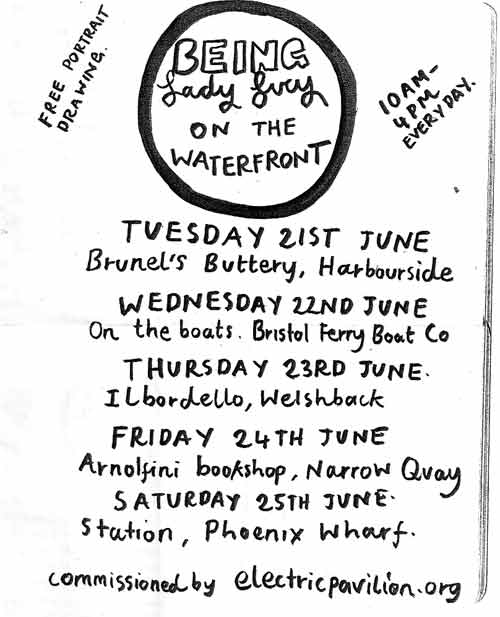 FREE PORTRAIT
DRAWING.
BEING
Lady Lucy
ON THE
WATERFRONT
10AM-
4PM
EVERYDAY.
TUESDAY 21ST JUNE
Brunel's Buttery, Harbourside
WEDNESDAY 22ND JUNE
On the boats. Bristol Ferry Boat Co
THURSDAY 23RD JUNE.
ILbordello, Welshback
FRIDAY 24TH JUNE
Arnolfini bookshop, Narrow Quay
SATURDAY 25TH JUNE.
Station, Phoenix Wharf.
commissioned by electricpavilion.org